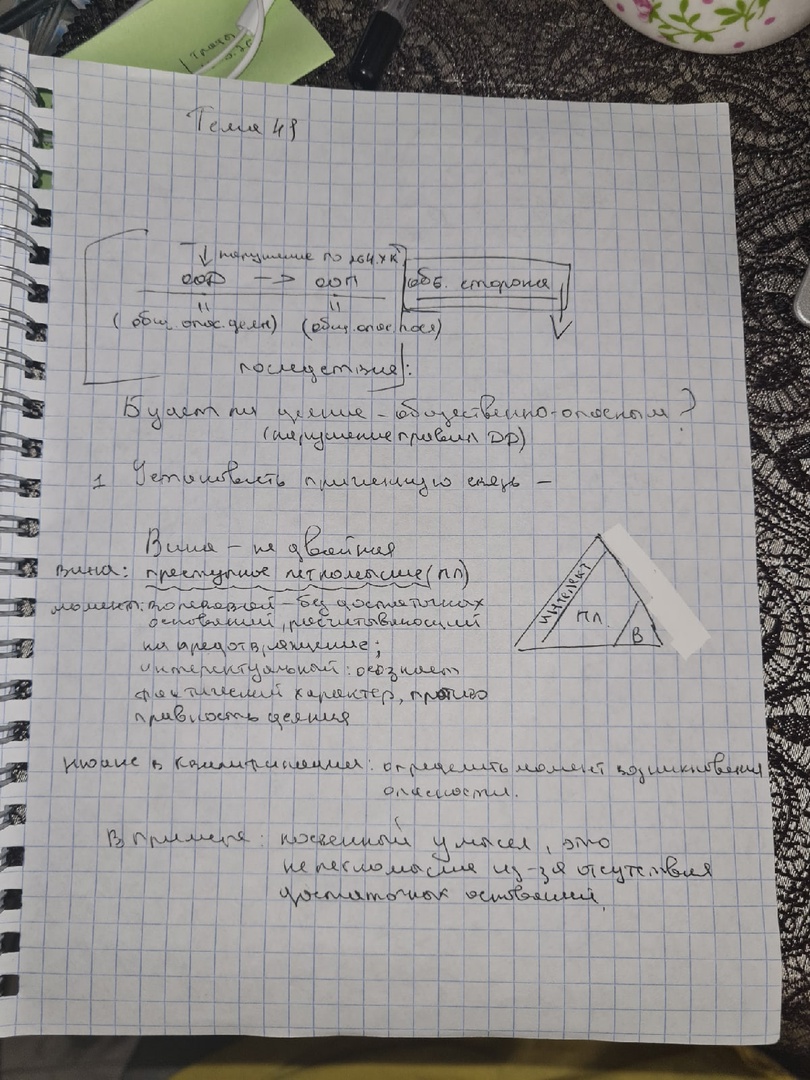 Тема 49
нарушение по 264 УК
ООД -> ООП
об. сторона
(общ. опас. деян) (общ. опас. посл)
последствия:
Будет ли деяние - общественно-опасным?
(нарушение правил ДД)
1 Установить причинную связь -
Вина - не двойная
вина: преступное легкомыслие (ПЛ)
момент: волевой - без достаточных
оснований, расчитывающий
на предотвращение;
интелектуальный: осознает
фактический характер, противо
правность деяния
ИНТЕЛЕКТ
ПЛ.
В
нюанс в квалификации: определить момент возникновения
опасности.
В примере: косвенный умысел, это
не легкомыслие из-за отсутствия
достаточных оснований.